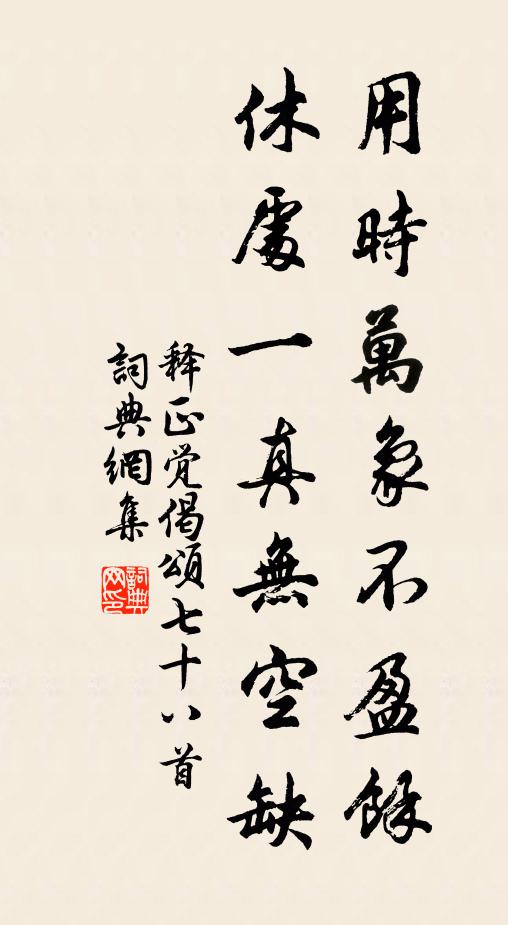 用時萬象不盈餘
休處一真無空缺
释正覚偈頌七十八首
詞典網集
詞典网印